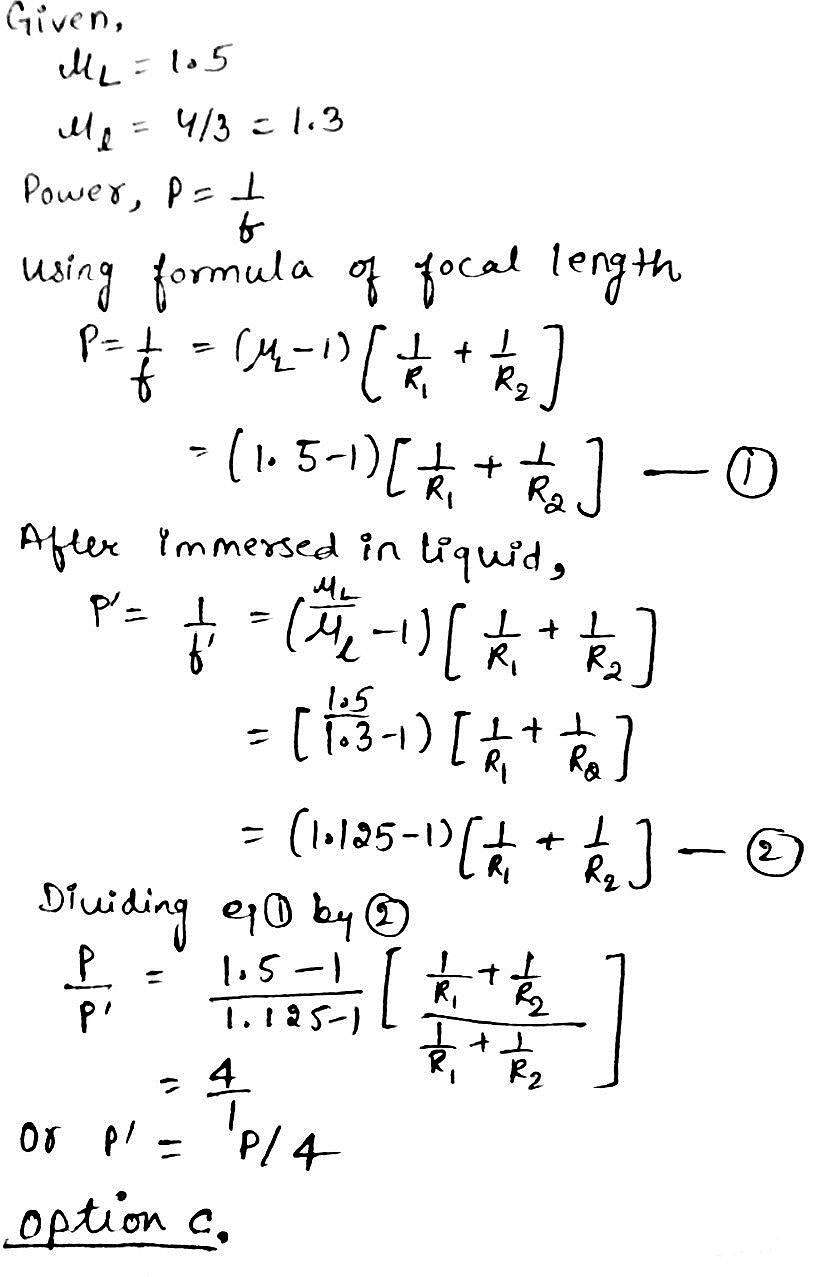 Given,
μL = 1.5
μl = 4/3 = 1.3
Power, P = 1/f
Using formula of focal length
P = 1/f = (μL-1) [1/R1 + 1/R2]
= (1.5-1) [1/R1 + 1/R2] — ①
After immersed in liquid,
P' = 1/f' = (μL/μl - 1) [1/R1 + 1/R2]
= [1.5/1.3 - 1) [1/R1 + 1/R2]
= (1.125-1) [1/R1 + 1/R2] — ②
Dividing eq ① by ②
P/P' = 1.5-1/1.125-1 [1/R1 + 1/R2 / 1/R1 + 1/R2]
= 4/1
Or P' = P/4
option c.